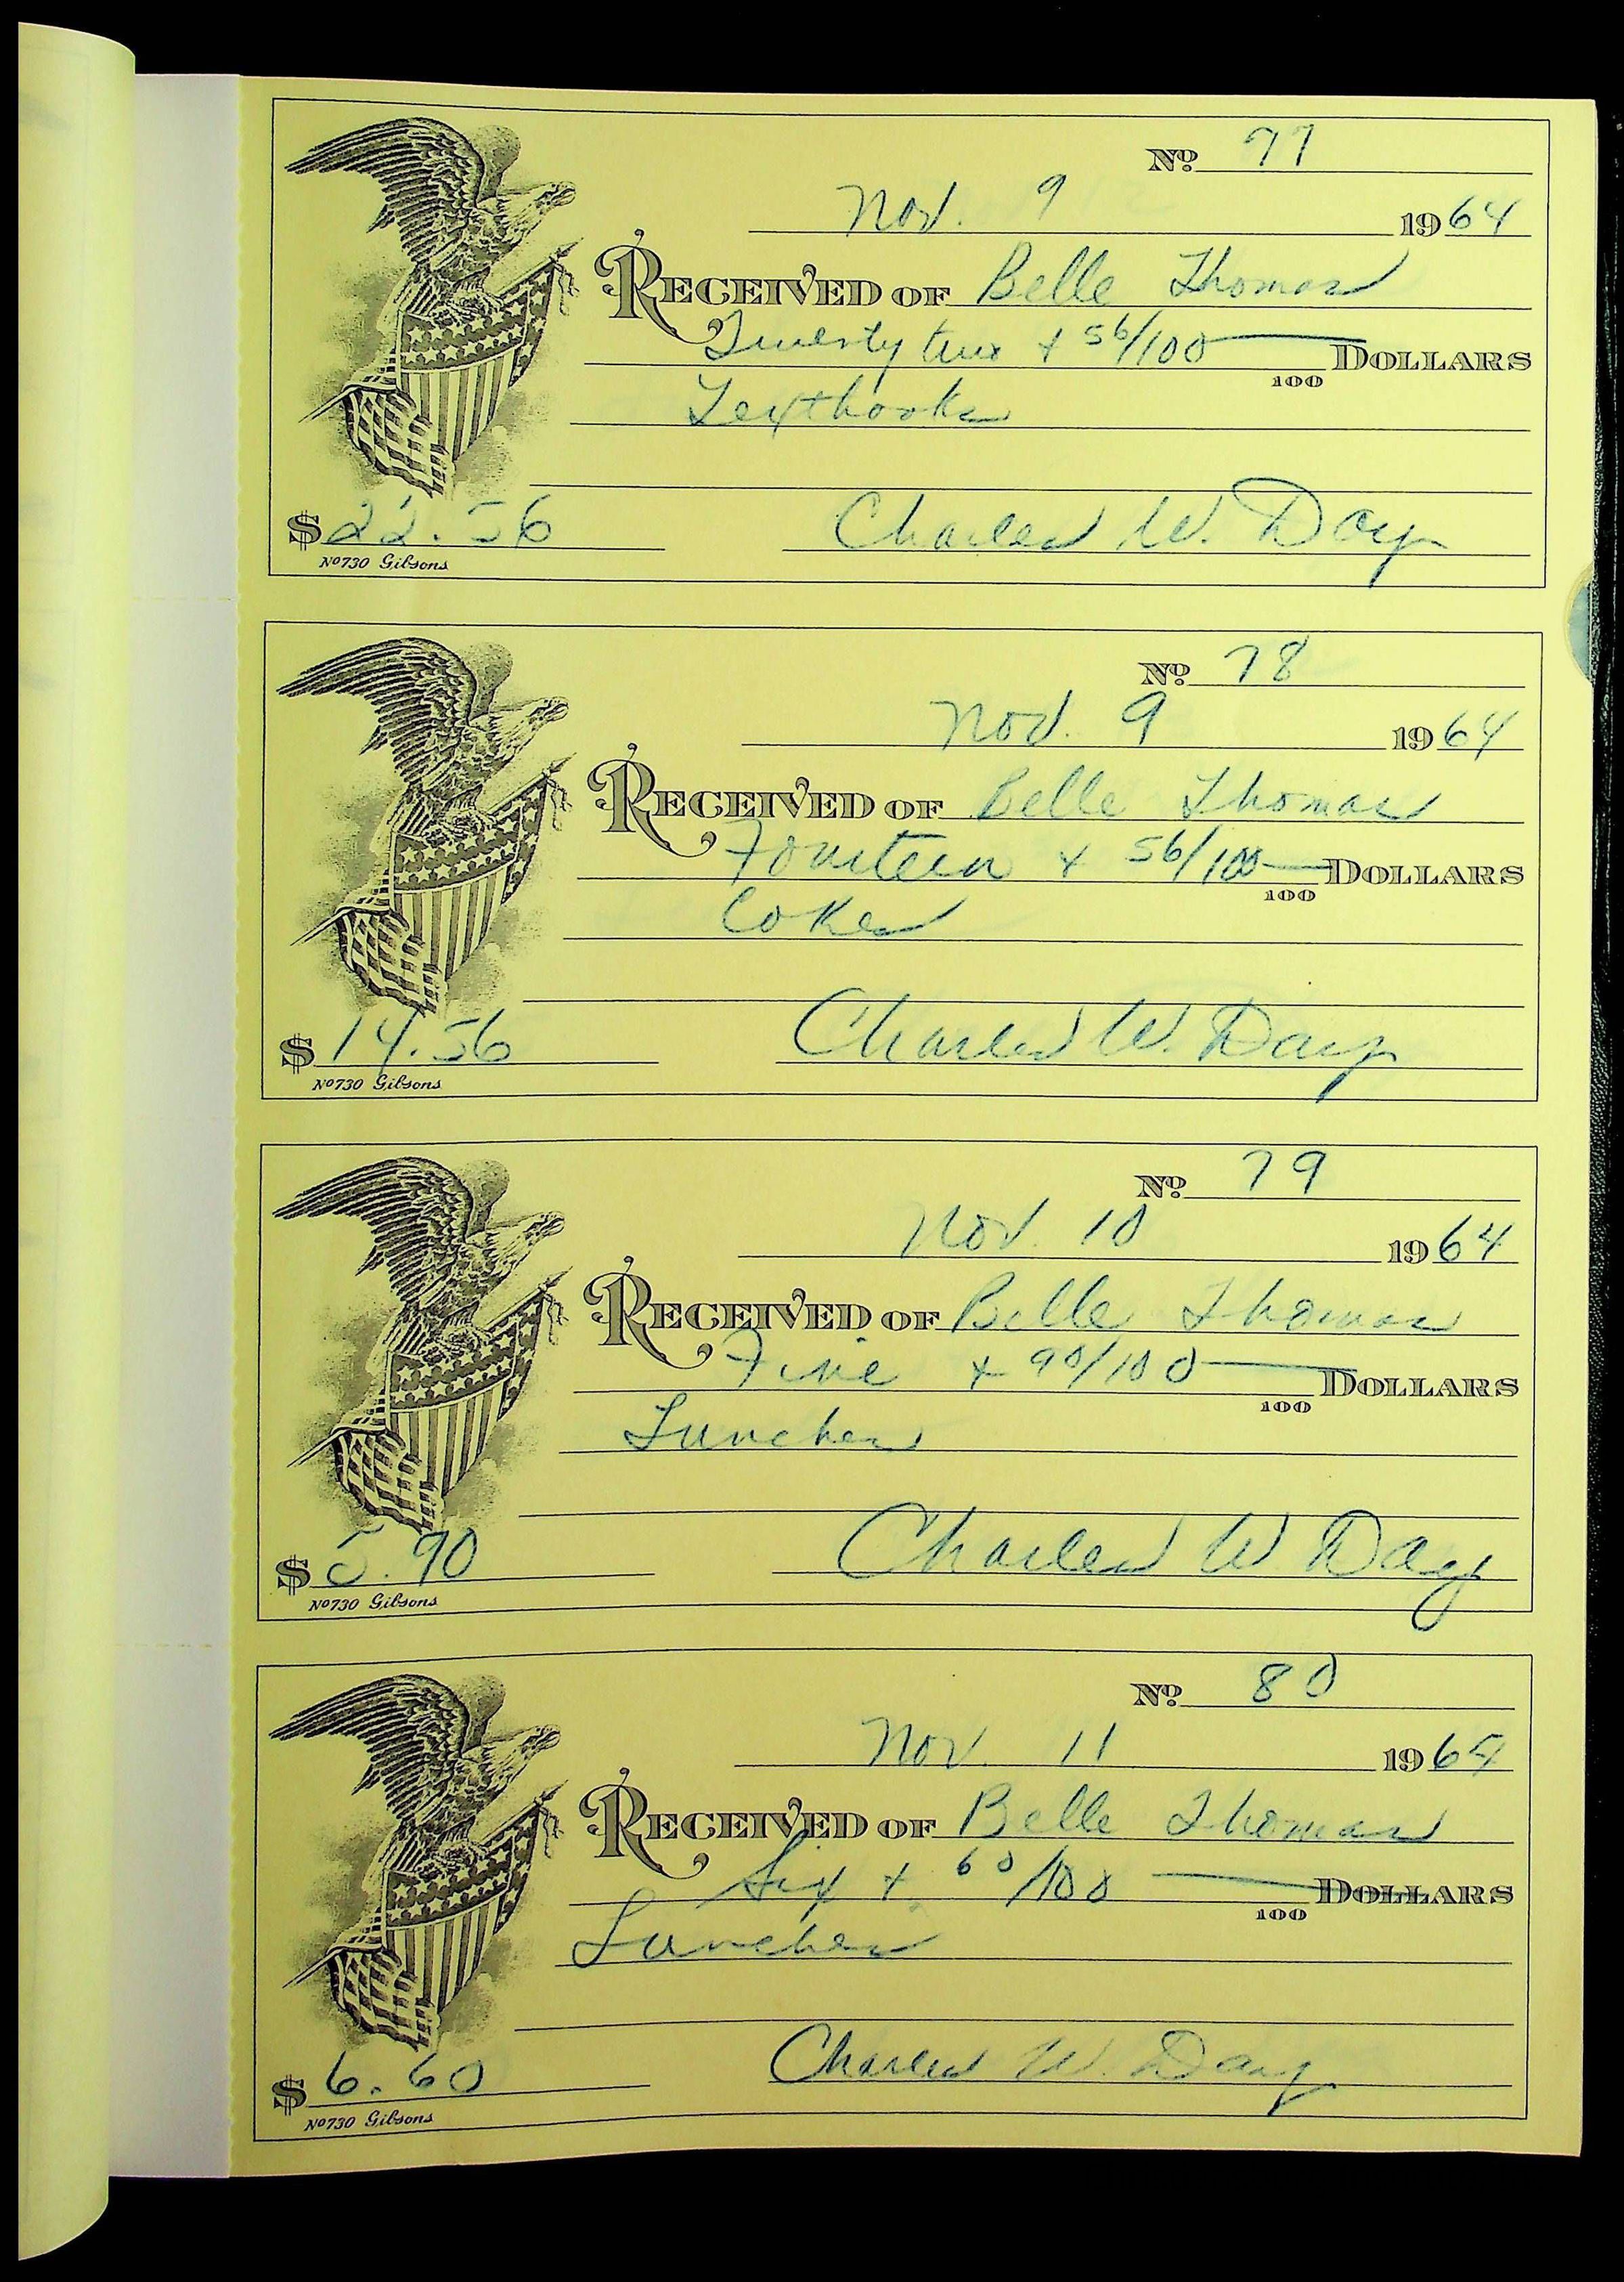 No. 77
Nov. 9 1964
RECEIVED OF Belle Thomas
Twenty two + 56/100 DOLLARS
100
Textbooks
$ 22.56 Charles W. Day
No 730 Gibsons
No. 78
Nov. 9 1964
RECEIVED OF Belle Thomas
Fourteen + 56/100 DOLLARS
100
Cokes
$ 14.56 Charles W. Day
No 730 Gibsons
No. 79
Nov. 10 1964
RECEIVED OF Belle Thomas
Five + 90/100 DOLLARS
100
Lunches
$ 5.90 Charles W. Day
No 730 Gibsons
No. 80
Nov. 11 1964
RECEIVED OF Belle Thomas
Six + 60/100 DOLLARS
100
Lunches
$ 6.60 Charles W. Day
No 730 Gibsons